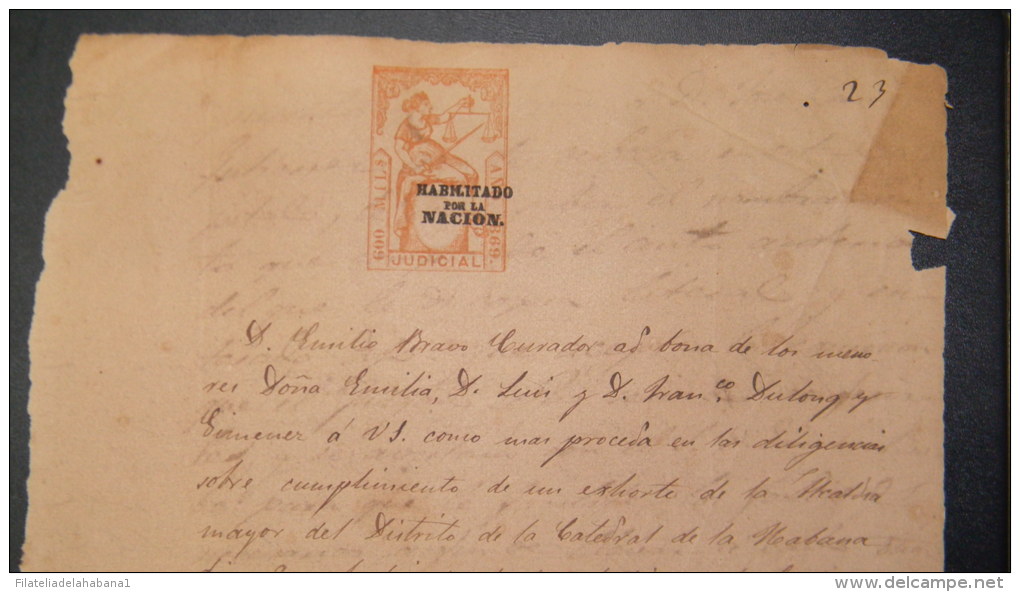 23
600 MILS
HABILITADO
POR LA
NACION.
869.
JUDICIAL
D. Emilio Bravo Curador ad bona de los meno
res Doña Emilia, D. Luis y D. Fran.co Dulong y
Gimenez á VS. como mas proceda en las diligencias
sobre cumplimiento de un exhorto de la Alcaldia
mayor del Distrito de la Catedral de la Habana
Filateliadelahabana1
www.delcampe.net